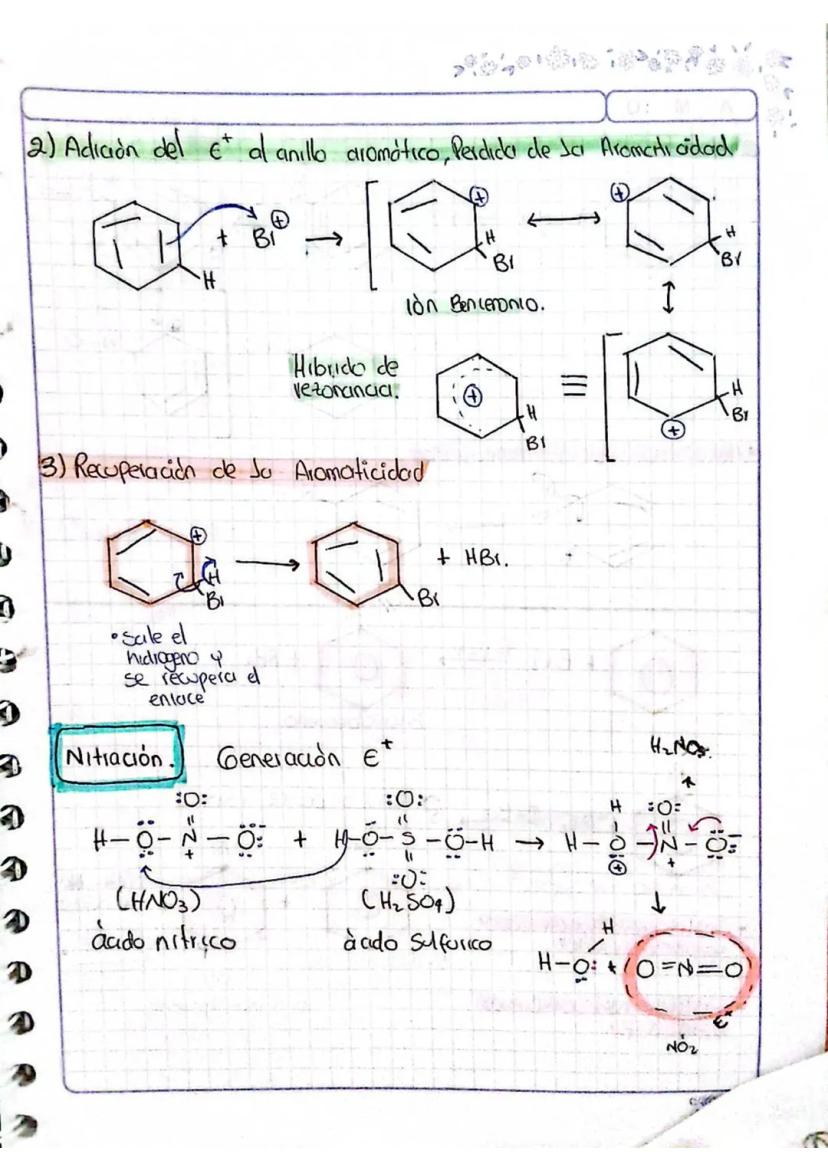 2) Adición del E⁺ al anillo aromático, Perdida de la Aromaticidad
+ Br⊕ → [ ⊕ ↔ ⊕
H H Br H Br
ión Bencenonio. ↕
Hibrido de
rezonancia. ⊕ H Br ≡ [ H Br ⊕
3) Recuperación de la Aromaticidad
⊕ H Br → Br + HBr.
• Sale el
hidrogeno y
se recupera el
enlace
Nitración. Generación E⁺ H₂NO₃
:O: :O: H :O:
H–O–N–O: + H–O–S–O–H → H–O–N–O:
+ :O: ⊕ +
(HNO₃) (H₂SO₄) ↓
ácido nitrico ácido Sulfurico
H
H–O: + O=N=O
E⁺
NO₂